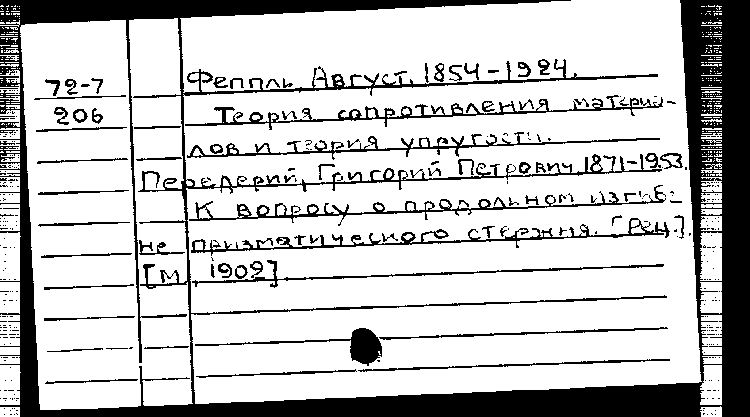 72-7 Феппль, Август, 1854-1924.
206 Теория сопротивления материа-
лов и теория упругости.
Передерий, Григорий Петрович, 1871-1953.
К вопросу о продольном изгибе
не призматического стержня. [Рец.].
[М., 1902].